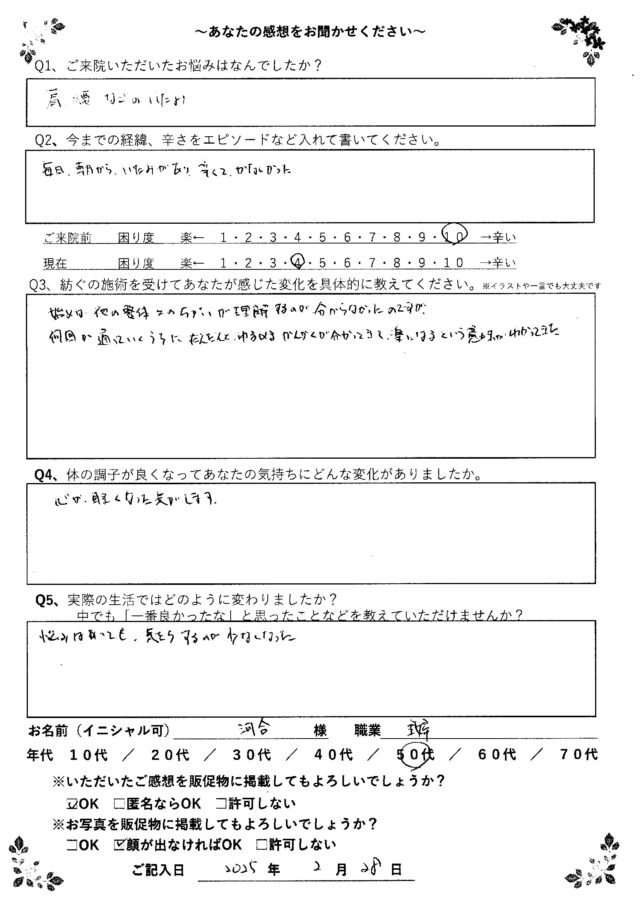 ～あなたの感想をお聞かせください～
Q1、ご来院いただいたお悩みはなんでしたか？
肩 腰 などのいたみ
Q2、今までの経緯、辛さをエピソードなど入れて書いてください。
毎日、朝から、いたみがあり、辛くて、かなしかった
ご来院前 困り度 楽← 1・2・3・4・5・6・7・8・9・10 →辛い
現在 困り度 楽← 1・2・3・4・5・6・7・8・9・10 →辛い
Q3、紡ぐの施術を受けてあなたが感じた変化を具体的に教えてください。※イラストや一言でも大丈夫です
始めは 他の整体とのちがいが理解するのが 分からなかったのですが、
何回か通っていくうちに だんだんと、ゆるめるかんかくが分かってきて、楽になるという意味が、わかってきた
Q4、体の調子が良くなってあなたの気持ちにどんな変化がありましたか。
心が、軽くなった気がします。
Q5、実際の生活ではどのように変わりましたか？
中でも「一番良かったな」と思ったことなどを教えていただけませんか？
悩みはあっても、するのが 少なくなった
お名前（イニシャル可） 河合 様 職業
年代 10代 ／ 20代 ／ 30代 ／ 40代 ／ 50代 ／ 60代 ／ 70代
※いただいたご感想を販促物に掲載してもよろしいでしょうか？
☑OK □匿名ならOK □許可しない
※お写真を販促物に掲載してもよろしいでしょうか？
□OK ☑顔が出なければOK □許可しない
ご記入日 2025 年 2 月 28 日